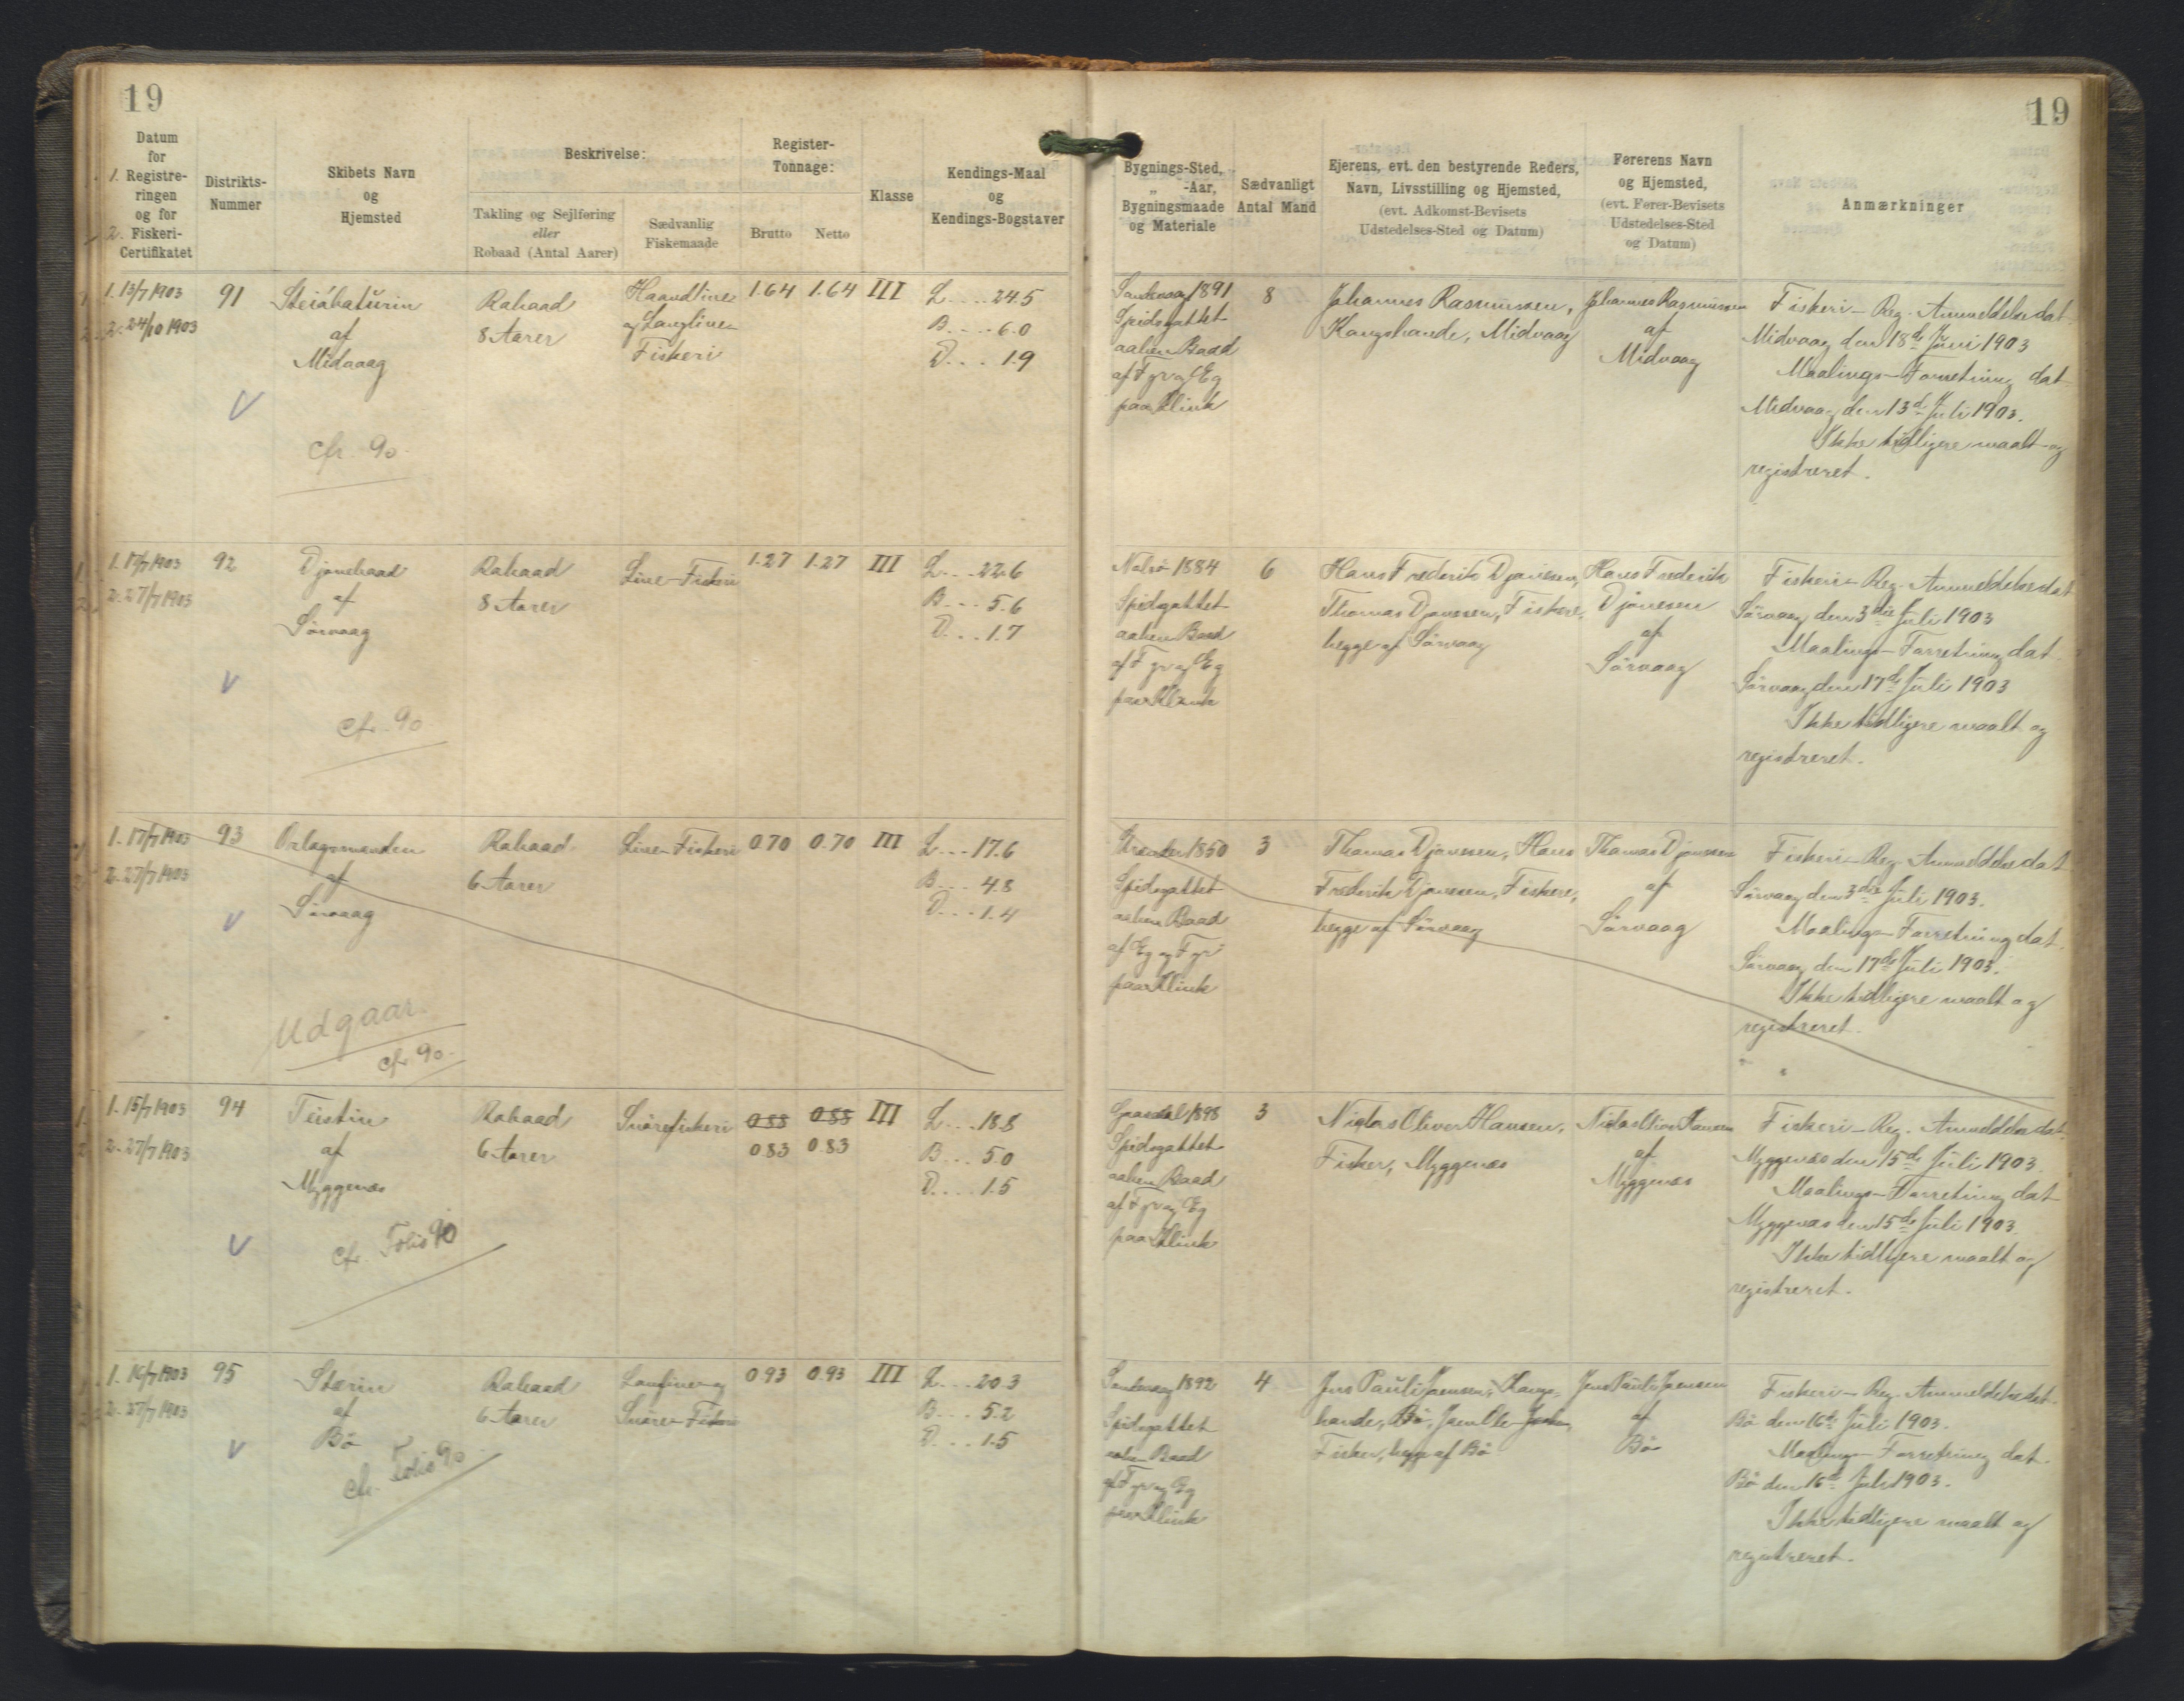 19
19
Datum
for
1. Registre-
ringen
og for
2. Fiskeri-
Certifikatet
Distrikts-
Nummer
Skibets Navn
og
Hjemsted
Beskrivelse:
Takling og Sejlføring
eller
Robaad (Antal Aarer)
Sædvanlig
Fiskemaade
Register-
Tonnage:
Brutto
Netto
Klasse
Kendings-Maal
og
Kendings-Bogstaver
Bygnings-Sted,
„ -Aar,
Bygningsmaade
og Materiale
Sædvanligt
Antal Mand
Ejerens, evt. den bestyrende Reders,
Navn, Livsstilling og Hjemsted,
(evt. Adkomst-Bevisets
Udstedelses-Sted og Datum)
Førerens Navn
og Hjemsted,
(evt. Fører-Bevisets
Udstedelses-Sted
og Datum)
Anmærkninger
1. 13/7 1903
2. 24/10 1903
91
af
Midvaag
cfr. 90
Robaad
8 Aarer
Haandline-
og Langline-
Fiskeri
1.64
1.64
III
L....24.5
B....6.0
D....1.9
Sandevaag 1891
Spidsgattet
aaben Baad
af Fyr og Eg
paa Klink
8
Johannes Rasmussen,
Kongsbonde, Midvaag
Johannes Rasmussen
af
Midvaag
Fiskeri-Reg. Anmeldelse dat.
Midvaag den 18de Juni 1903
Maalings-Forretning dat.
Midvaag den 13de Juli 1903.
Ikke tidligere maalt og
registreret.
1. 17/7 1903
2. 27/7 1903
92
Djonebaad
af
Sörvaag
cfr. 90
Robaad
8 Aarer
Line-Fiskeri
1.27
1.27
III
L....22.6
B....5.6
D....1.7
Nolsö 1884
Spidsgattet
aaben Baad
af Fyr og Eg
paa Klink
6
Hans Frederik Djonesen,
Thomas Djonesen, Fiskere,
begge af Sörvaag
Hans Frederik
Djonesen
af
Sörvaag
Fiskeri-Reg. Anmeldelse dat.
Sörvaag den 3die Juli 1903
Maalings-Forretning dat.
Sörvaag den 17de Juli 1903
Ikke tidligere maalt og
registreret.
1. 17/7 1903
2. 27/7 1903
93
Orlogsmanden
af
Sörvaag
Udgaar.
cfr. 90
Robaad
6 Aarer
Line-Fiskeri
0.70
0.70
III
L....17.6
B....4.8
D....1.4
1850
Spidsgattet
aaben Baad
af Eg og Fyr
paa Klink
3
Thomas Djonesen, Hans
Frederik Djonesen, Fiskere,
begge af Sörvaag
Thomas Djonesen
af
Sörvaag
Fiskeri-Reg. Anmeldelse dat.
Sörvaag den 3die Juli 1903.
Maalings-Forretning dat.
Sörvaag den 17de Juli 1903.
Ikke tidligere maalt og
registreret.
1. 15/7 1903
2. 27/7 1903
94
Teistin
af
Myggenæs
cfr. Folio 90
Robaad
6 Aarer
Snörefiskeri
0.88
0.88
0.83
0.83
III
L....18.8
B....5.0
D....1.5
Gaasedal 1898
Spidsgattet
aaben Baad
af Fyr og Eg
paa Klink
3
Niclas Oliver Hansen,
Fisker, Myggenæs
Niclas Oliver Hansen
af
Myggenæs
Fiskeri-Reg. Anmeldelse dat.
Myggenæs den 15de Juli 1903.
Maalings-Forretning dat.
Myggenæs den 15de Juli 1903.
Ikke tidligere maalt og
registreret.
1. 16/7 1903
2. 27/7 1903
95
af
Bö
cfr. Folio 90
Robaad
6 Aarer
Langline- og
Snöre-Fiskeri
0.93
0.93
III
L....20.3
B....5.2
D....1.5
Sandevaag 1892
Spidsgattet
aaben Baad
af Fyr og Eg
paa Klink
4
Jens Pauli Joensen, Kongs-
bonde, Bö, Joen Ole
Fisker, begge af Bö
Jens Pauli Joensen
af
Bö
Fiskeri-Reg. Anmeldelse dat.
Bö den 16de Juli 1903.
Maalings-Forretning dat.
Bö den 16de Juli 1903.
Ikke tidligere maalt og
registreret.